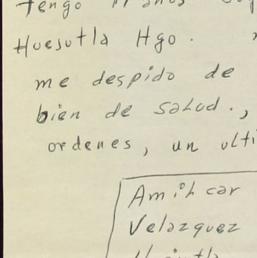 Tengo 11 años
Huejutla Hgo.
me despido de
bien de salud.,
ordenes, un ulti
Amilcar
Velazquez